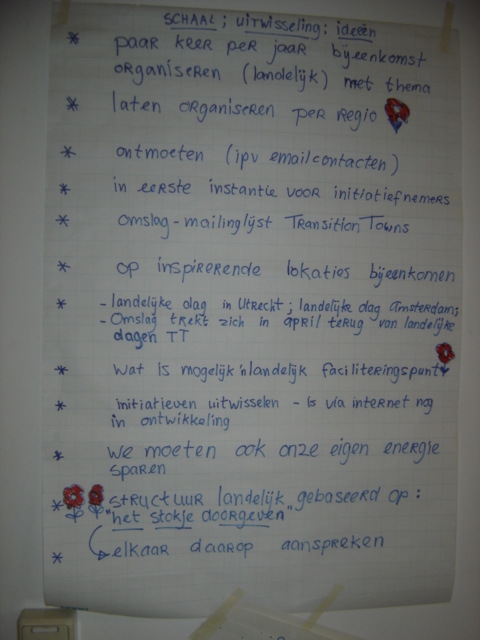 SCHAAL; UITWISSELING: ideeën
* paar keer per jaar bijeenkomst
organiseren (landelijk) met thema
* laten organiseren per regio
* ontmoeten (ipv emailcontacten)
* in eerste instantie voor initiatiefnemers
* omslag-mailinglijst Transition Towns
* op inspirerende lokaties bijeenkomen
* - landelijke dag in Utrecht; landelijke dag Amsterdam;
- Omslag trekt zich in april terug van landelijke
dagen TT
* wat is mogelijk 'n landelijk faciliteringspunt
* initiatieven uitwisselen - is via internet nog
in ontwikkeling
* we moeten ook onze eigen energie
sparen
* structuur landelijk gebaseerd op:
"het stokje doorgeven"
* elkaar daarop aanspreken